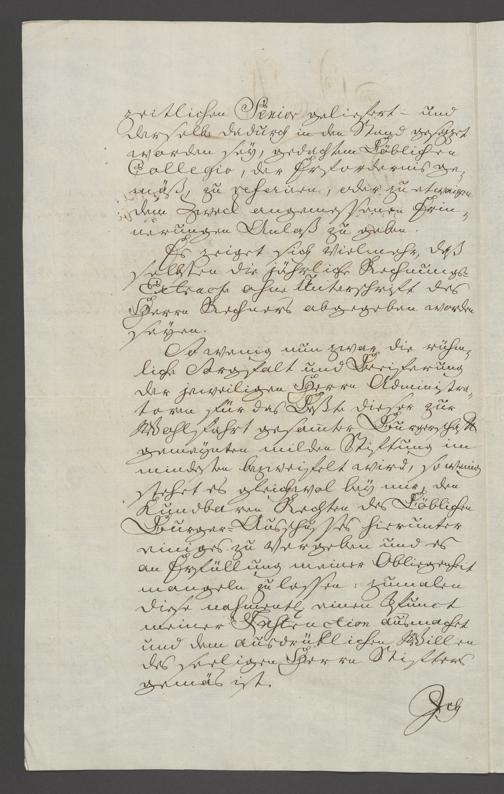 zeitlichen Senior geliefert – und
derselbe dadurch in den Stand gesetzt
worden sey, gedachtem Löblichen
Collegio, der Erfordernis ge-
mäß, zu referiren, oder zu etwaigen
dem Zweck angemessenen Erin-
nerungen Anlaß zu geben.
Es zeiget sich vielmehr, daß
selbsten die jährliche Rechnungs
Extracte ohne Unterschrift des
Herrn Rechners abgegeben worden
seyen.
So wenig nun zwar die rühm-
liche Sorgfalt und Beeiferung
der jeweiligen Herrn Administra-
toren für das Beste dieser zur
Wohlfahrt gesamter Burgerschaft
gemeynten milden Stiftung im
mindesten bezweifelt wird, so wenig
stehet es gleichwol bey mir, den
kundbaren Rechten des Löblichen
Burger-Ausschusses hierunter
einiges zu vergeben und es
an Erfüllung meiner Obliegenheit
mangeln zu lassen: zumalen
diese nahmentl. einen Punct
meiner Instruction ausmachet
und dem ausdrüklichen Willen
des seeligen Herrn Stifters
gemäs ist.
Ich